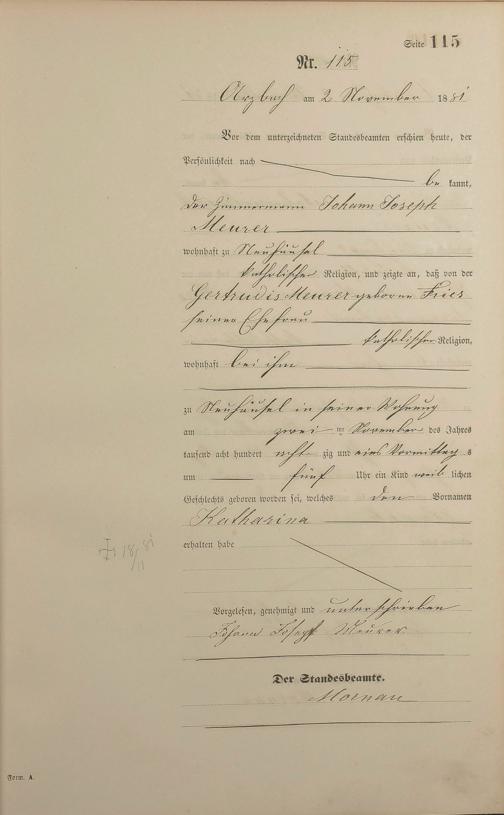 Seite 115
Nr. 115
Arzbach am 2 November 1881
Vor dem unterzeichneten Standesbeamten erschien heute, der
Persönlichkeit nach
be kannt,
der Zimmermann Johann Joseph
Meurer
wohnhaft zu Neuhäusel
katholischer Religion, und zeigte an, daß von der
Gertrudis Meurer geborene Fries
seiner Ehefrau
katholischer Religion,
wohnhaft bei ihm
zu Neuhäusel in seiner Wohnung
am zwei ten November des Jahres
tausend acht hundert acht zig und eins Vormittag s
um fünf Uhr ein Kind weib lichen
Geschlechts geboren worden sei, welches den Vornamen
Katharina
erhalten habe
18/11 81
Vorgelesen, genehmigt und unterschrieben
Johann Joseph Meurer
Der Standesbeamte.
Form. A.